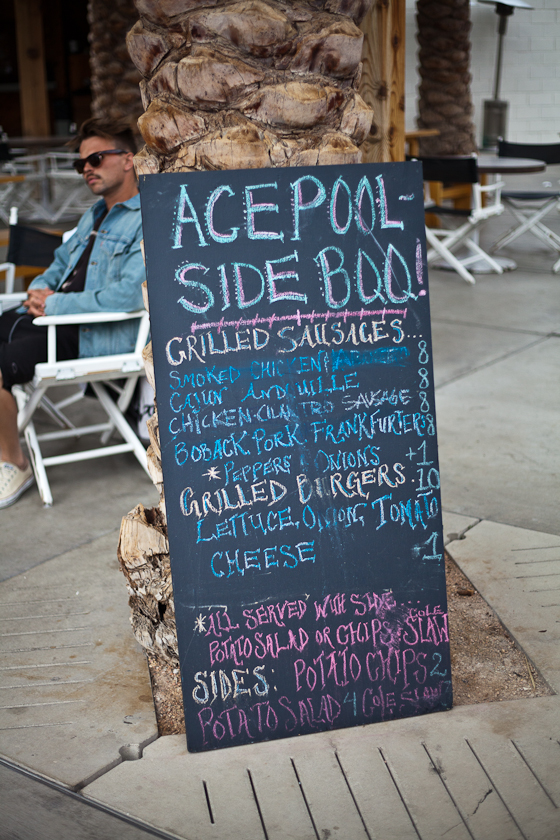 ACE POOL-
SIDE BBQ!
GRILLED SAUSAGES... 8
SMOKED CHICKEN
CAJUN ANDOUILLE 8
CHICKEN-CILANTRO SAUSAGE 8
BOBACK PORK FRANKFURTERS 8
*PEPPERS ONIONS +1
GRILLED BURGERS. 10
LETTUCE, ONION, TOMATO
CHEESE 1
*ALL SERVED WITH SIDE
POTATO SALAD OR CHIPS COLE SLAW
SIDES. POTATO CHIPS 2
POTATO SALAD 4 COLE SLAW